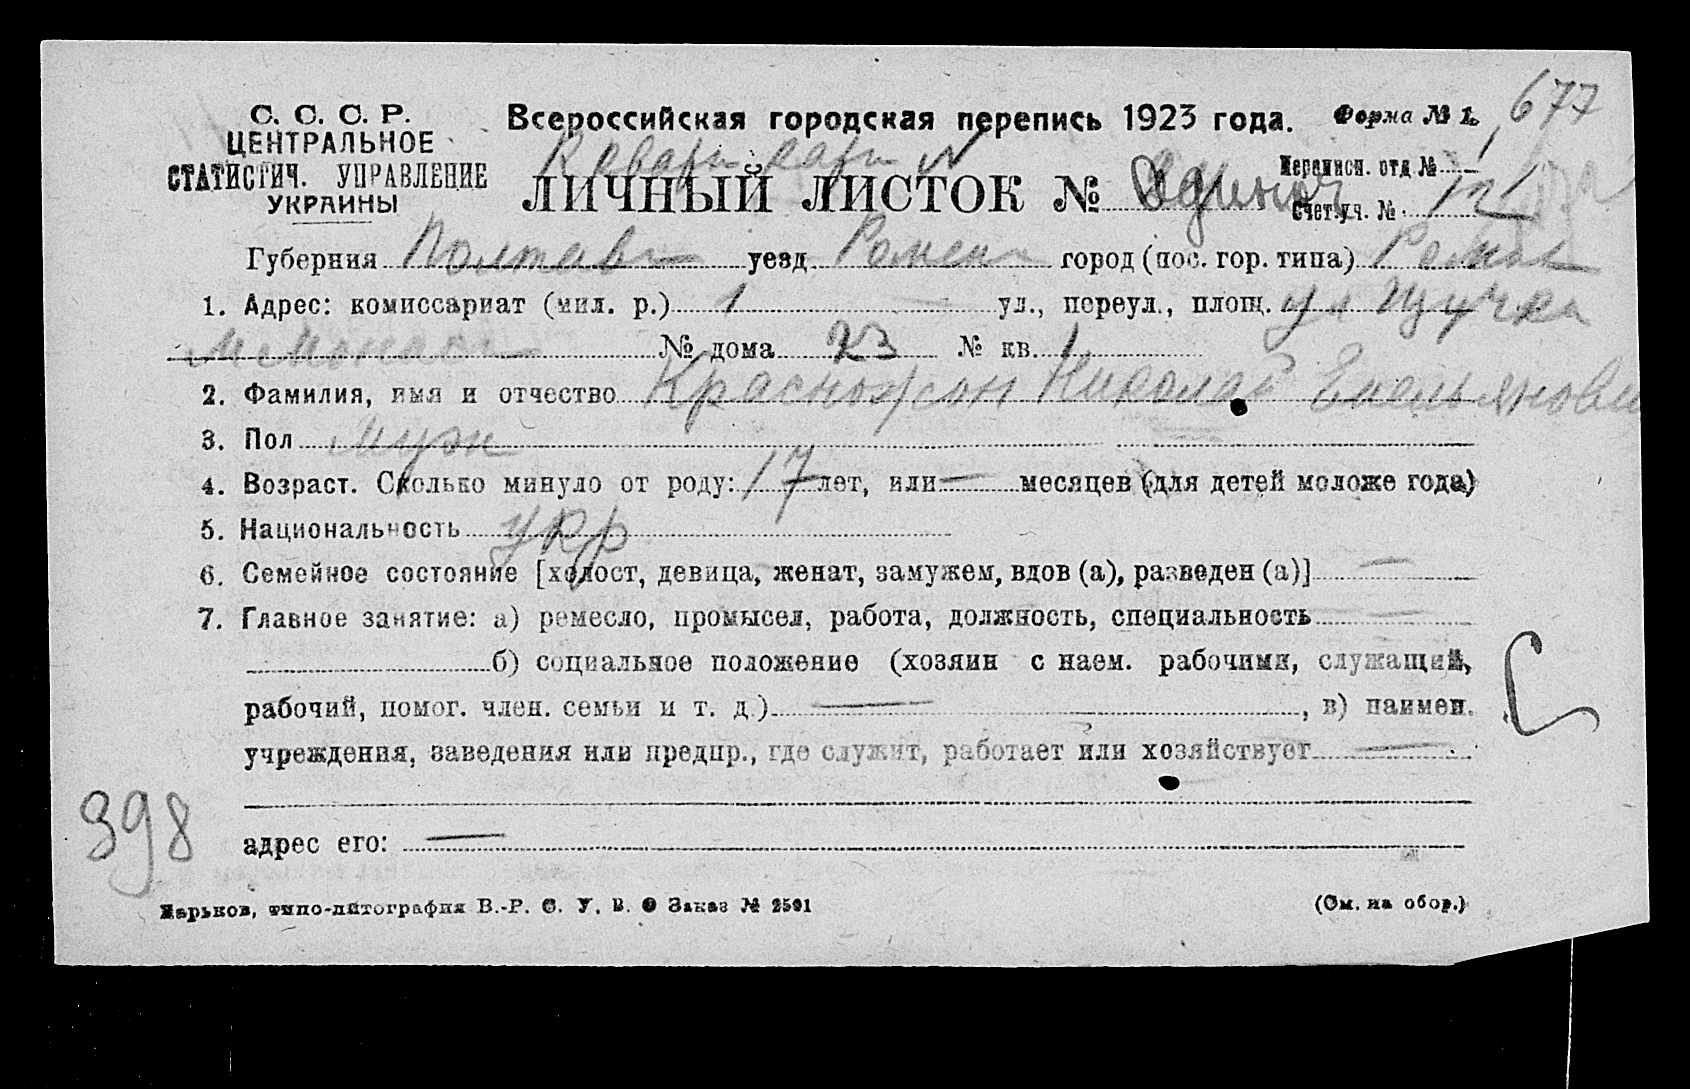 С. С. С. Р.
ЦЕНТРАЛЬНОЕ
СТАТИСТИЧ. УПРАВЛЕНИЕ
УКРАИНЫ
Всероссийская городская перепись 1923 года.
Форма № 1.
677
ЛИЧНЫЙ ЛИСТОК №
Переписн. отд. № 1
Счет. уч. № 121
Губерния Полтавс уезд Роменс город (пос. гор. типа)
1. Адрес: комиссариат (мил. р.) 1 ул., переул., площ. ул
№ дома 23 № кв. 1
2. Фамилия, имя и отчество Красножон Николай Емельянович
3. Пол Муж
4. Возраст. Сколько минуло от роду: 17 лет, или — месяцев (для детей моложе года)
5. Национальность укр
6. Семейное состояние [холост, девица, женат, замужем, вдов (а), разведен (а)] —
7. Главное занятие: а) ремесло, промысел, работа, должность, специальность —
б) социальное положение (хозяин с наем. рабочими, служащий,
рабочий, помог. член. семьи и т. д.) — , в) наимен.
учреждения, заведения или предпр., где служит, работает или хозяйствует —
адрес его: —
398
Харьков, типо-литография В.-Р. С. У. В. О Заказ № 2591
(См. на обор.)